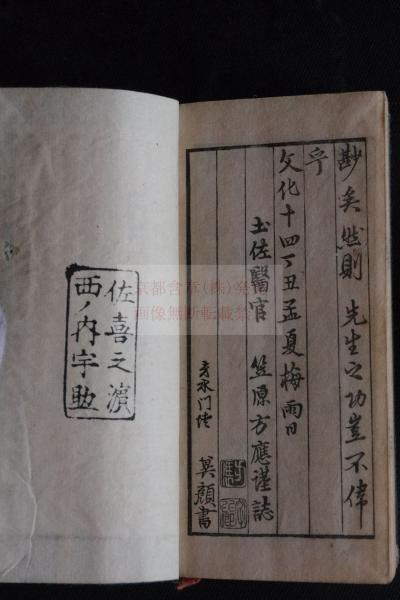 尠矣然則 先生之功豈不偉
乎
文化十四丁丑孟夏梅雨日
土佐醫官 笠原方應謹誌
門徒 莫顏書
佐喜之濵
西ノ内宇助
京都舎章(株)
画像無断転載禁